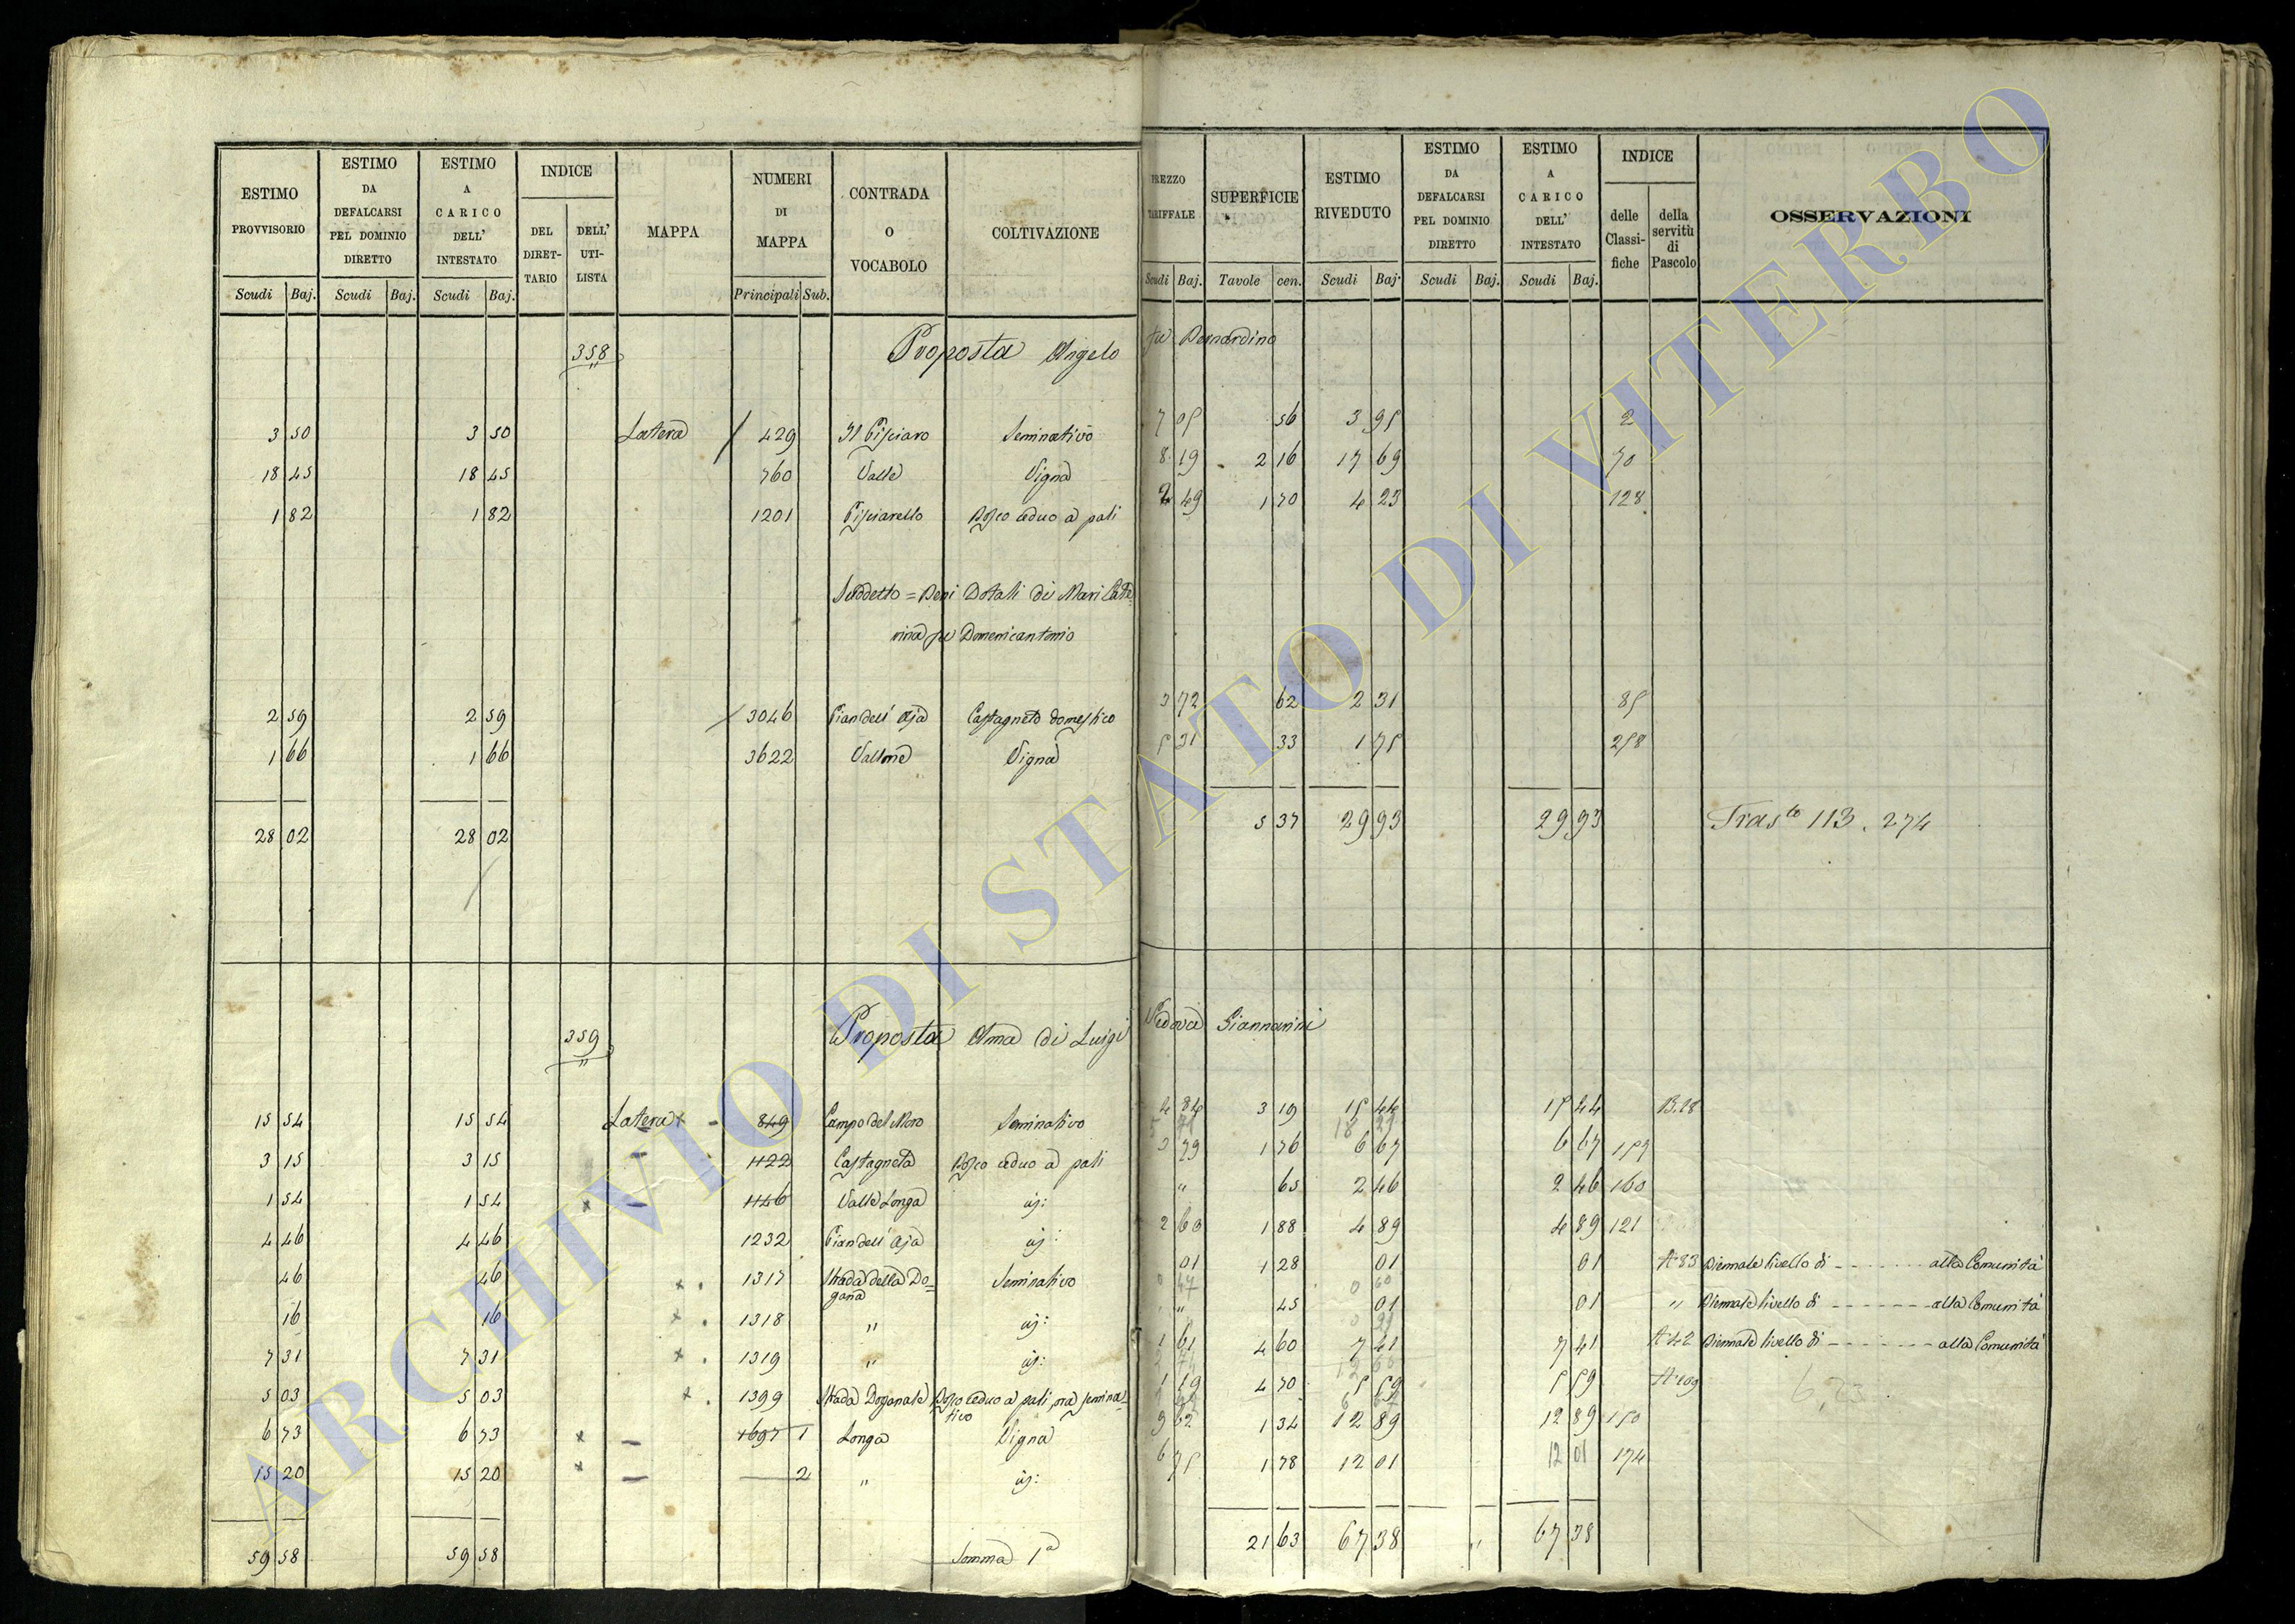 ESTIMO PROVVISORIO | ESTIMO DA DEFALCARSI PEL DOMINIO DIRETTO | ESTIMO A CARICO DELL' INTESTATO | INDICE DEL DIRETTARIO | DELL' UTILISTA | MAPPA | NUMERI DI MAPPA | CONTRADA O VOCABOLO | COLTIVAZIONE | PREZZO TARIFFALE | SUPERFICIE | ESTIMO RIVEDUTO | ESTIMO DA DEFALCARSI PEL DOMINIO DIRETTO | ESTIMO A CARICO DELL' INTESTATO | INDICE delle Classifiche | della servitù di Pascolo | OSSERVAZIONI
Scudi Baj. Scudi Baj. Scudi Baj. Principali Sub. Scudi Baj. Tavole cen. Scudi Baj. Scudi Baj. Scudi Baj.
358 Proposta Angelo fu Bernardino
3 50 3 50 Latera 429 Il Pisciaro Seminativo 7 05 56 3 95 2
18 45 18 45 760 Valle Vigna 8 19 2 16 17 69 70
1 82 1 82 1201 Pisciarello Bosco ceduo a pali 2 49 1 70 4 23 128
Suddetto = Beni Dotali di Mari Cate
rina fu Domenicantonio
2 59 2 59 3046 Pian dell' Aja Castagneto domestico 3 72 62 2 31 85
1 66 1 66 3622 Vallone Vigna 5 31 33 1 75 258
28 02 28 02 5 37 29 93 29 93 Trasto 113. 274
359 Proposta Anna di Luigi Vedova Giannarini
15 54 15 54 Latera 849 Campo del Moro Seminativo 4 84 3 19 15 44 15 44 B.28
3 15 3 15 1122 Castagneta Bosco ceduo a pali 3 79 1 76 6 67 6 67 157
1 54 1 54 1146 Valle Longa id: " 65 2 46 2 46 160
4 46 4 46 1232 Pian dell' Aja id: 2 60 1 88 4 89 4 89 121
46 46 1317 Strada della Do=
gana Seminativo 01 1 28 01 01 A 83 Biennale livello di - - - - - - alla Comunità
16 16 1318 " id: " 45 01 01 " Biennale livello di - - - - - - alla Comunità
7 31 7 31 1319 " id: 1 61 4 60 7 41 7 41 A 42 Biennale livello di - - - - - - alla Comunità
5 03 5 03 1399 Strada Doganale Bosco ceduo a pali, ora semina=
tivo 1 19 4 70 5 59 5 59 A 109
6 73 6 73 1697 1 Longa Vigna 9 62 1 34 12 89 12 89 150
15 20 15 20 2 " id: 6 75 1 78 12 01 12 01 174
59 58 59 58 Somma 1a 21 63 67 38 " 67 38
ARCHIVIO DI STATO DI VITERBO